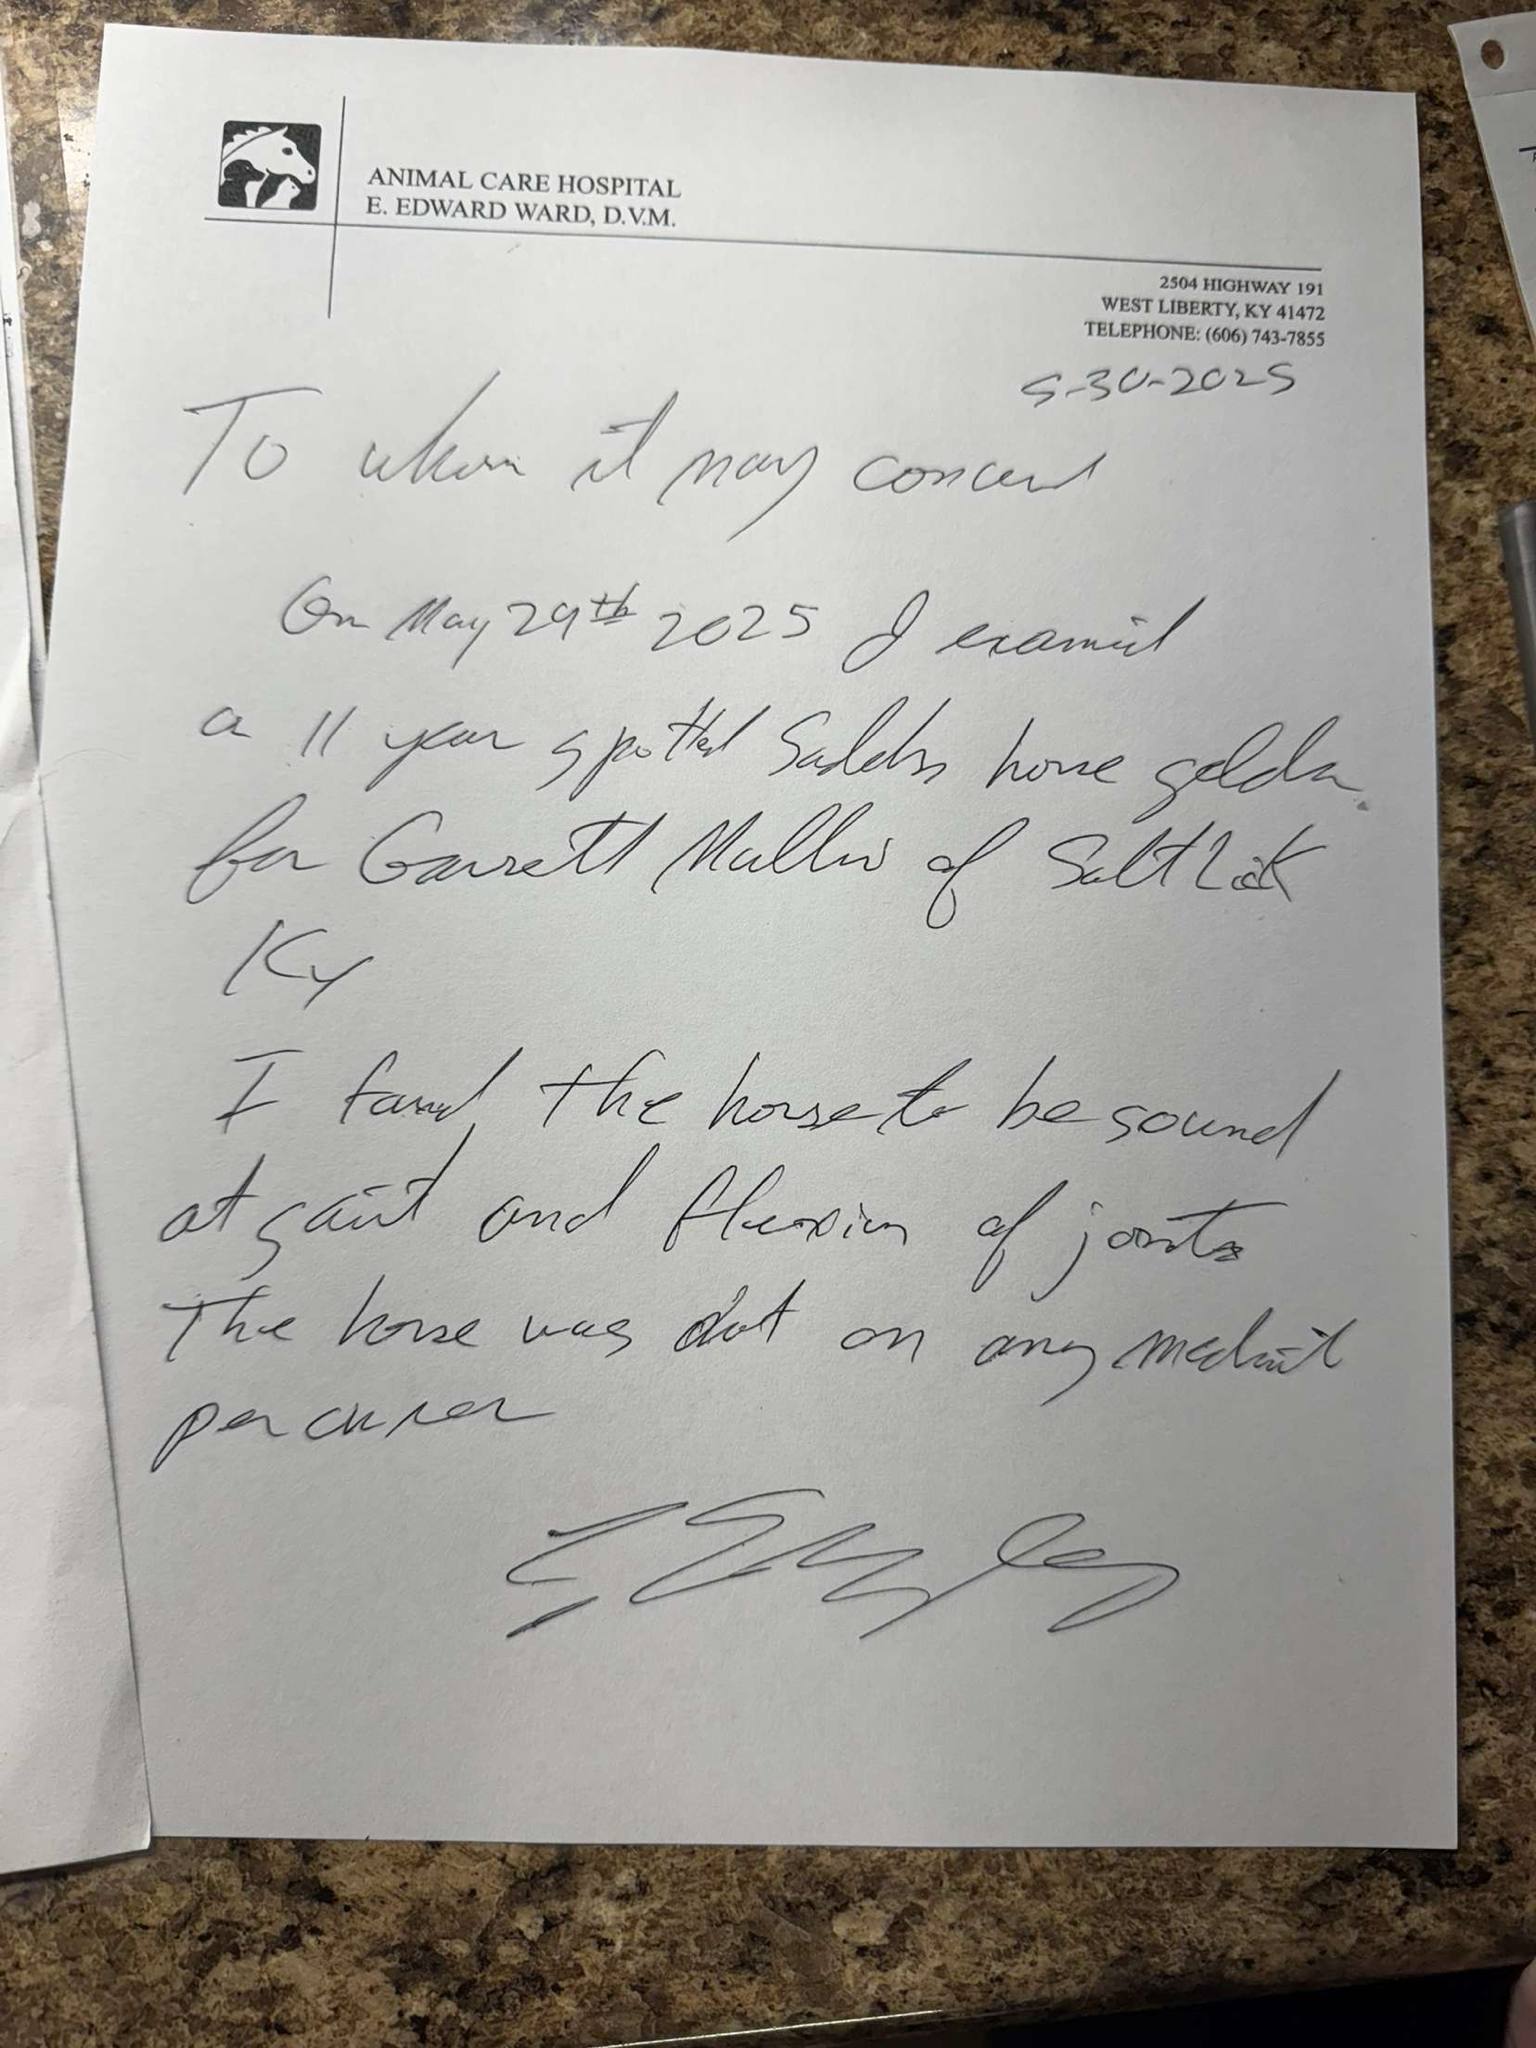 ANIMAL CARE HOSPITAL
E. EDWARD WARD, D.V.M.
2504 HIGHWAY 191
WEST LIBERTY, KY 41472
TELEPHONE: (606) 743-7855
5-30-2025
To whom it may concern
On May 29th 2025 I examined
a 11 year spotted Saddle horse
for Garrett of Salt Lick
Ky
I found the horse to be sound
at gait and flexion of joints
The horse was not on any
per owner